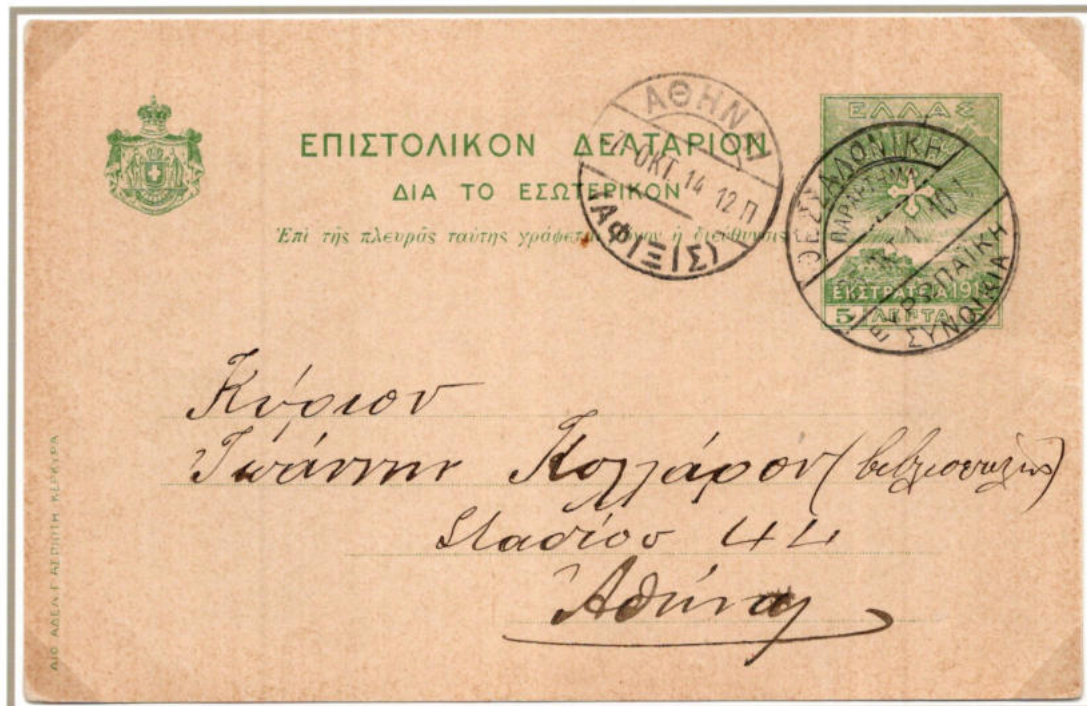 ΕΠΙΣΤΟΛΙΚΟΝ ΔΕΛΤΑΡΙΟΝ
ΔΙΑ ΤΟ ΕΣΩΤΕΡΙΚΟΝ
Ἐπὶ τῆς πλευρᾶς ταύτης γράφεται μόνον ἡ διεύθυνσις
ΑΘΗΝΑΙ
7 ΟΚΤ. 14 12 Π
(ΑΦΙΞΙΣ)
ΕΛΛΑΣ
ΕΚΣΤΡΑΤΕΙΑ 191
5 ΛΕΠΤΑ 5
ΘΕΣΣΑΛΟΝΙΚΗ
ΕΥΡΩΠΑΪΚΗ
ΣΥΝΟΙΚΙΑ
Κύριον
Ἰωάννην Κολλάρον (βιβλιοπώλην)
Σταδίου 44
Ἀθήνας
ΑΣΠΙΩΤΗ ΚΕΡΚΥΡΑ